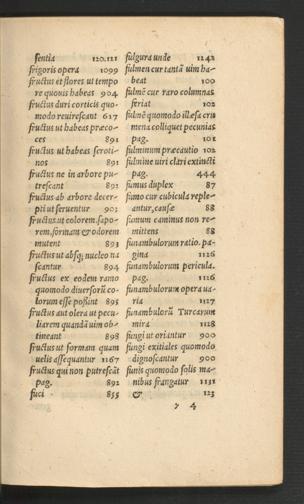 sentia 120.121
frigoris opera 1099
fructus et flores ut tempo
re quouis habeas 904
fructus duri corticis quo-
modo reuirescant 617
fructus ut habeas præco-
ces 891
fructus ut habeas seroti-
nos 891
fructus ne in arbore pu-
trescant 892
fructus ab arbore decer-
pti ut seruentur 903
fructus ut colorem, sapo-
rem, formam & odorem
mutent 893
fructus ut absq; nucleo na
scantur 894
fructus ex eodem ramo
quomodo diuersorū co-
lorum esse poßint 895
fructus aut olera ut pecu-
liarem quandā uim ob-
tineant 898
fructus ut formam quam
uelis assequantur 1167
fructus qui non putrescāt
pag. 892
fuci 855
fulgura unde 1242
fulmen cur tantā uim ha-
beat 100
fulmē cur raro columnas
feriat 102
fulmē quomodo illæsa cru
mena colliquet pecunias
pag. 101
fulminum præcautio 102
fulmine uiri clari extincti
pag. 444
fumus duplex 87
fumo cur cubicula reple-
antur, causæ 88
fumum caminus non re-
mittens 88
funambulorum ratio. pa-
gina 1126
funambulorum pericula.
pag. 1126
funambulorum opera ua-
ria 1127
funambulorū Turcarum
mira 1128
fungi ut oriantur 900
fungi exitiales quomodo
dignoscantur 900
funis quomodo solis ma-
nibus frangatur 1131
& 123
γ 4